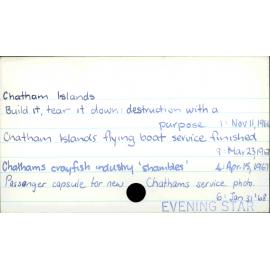 Chatham Islands
Build it, tear it down: destruction with a
purpose 1: Nov 11, 1966
Chatham Islands flying boat service finished
9: Mar 23 1967
Chathams crayfish industry 'shambles' 4: Apr 15, 1967
Passenger capsule for new Chathams service photo.
6: Jan 31 '68
EVENING STAR